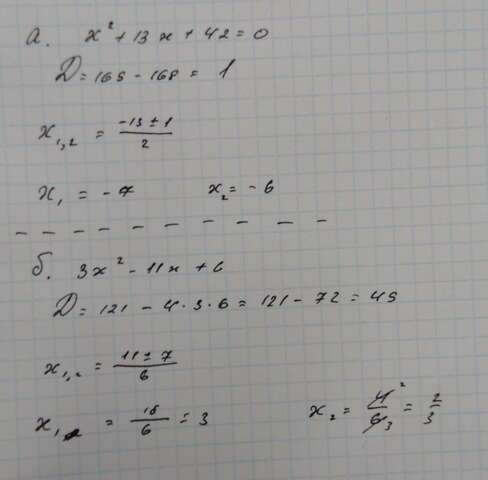 а. x² + 13x + 42 = 0
D = 169 - 168 = 1
x₁,₂ = (-13 ± 1)/2
x₁ = -7 x₂ = -6
б. 3x² - 11x + 6
D = 121 - 4·3·6 = 121 - 72 = 49
x₁,₂ = (11 ± 7)/6
x₁ = 18/6 = 3 x₂ = 4/6 = 2/3